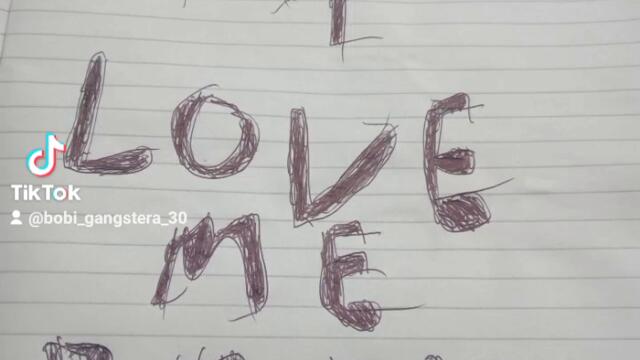 I
LOVE
ME
TikTok
@bobi_gangstera_30